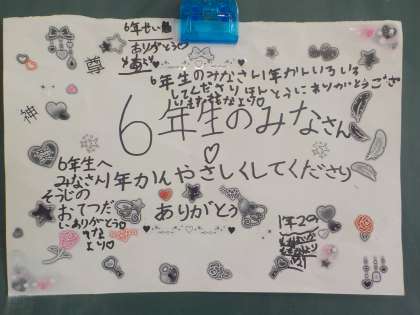 6年せい
ありがとう
6年生のみなさん1年かんいろいろ
してくださりほんとうにありがとうござ
います
6年生のみなさん
♡
1年かんやさしくしてくださり
ありがとう
6年生へ
みなさん
そうじの
おてつだ
いありがとう
より
1年2の
神
尊